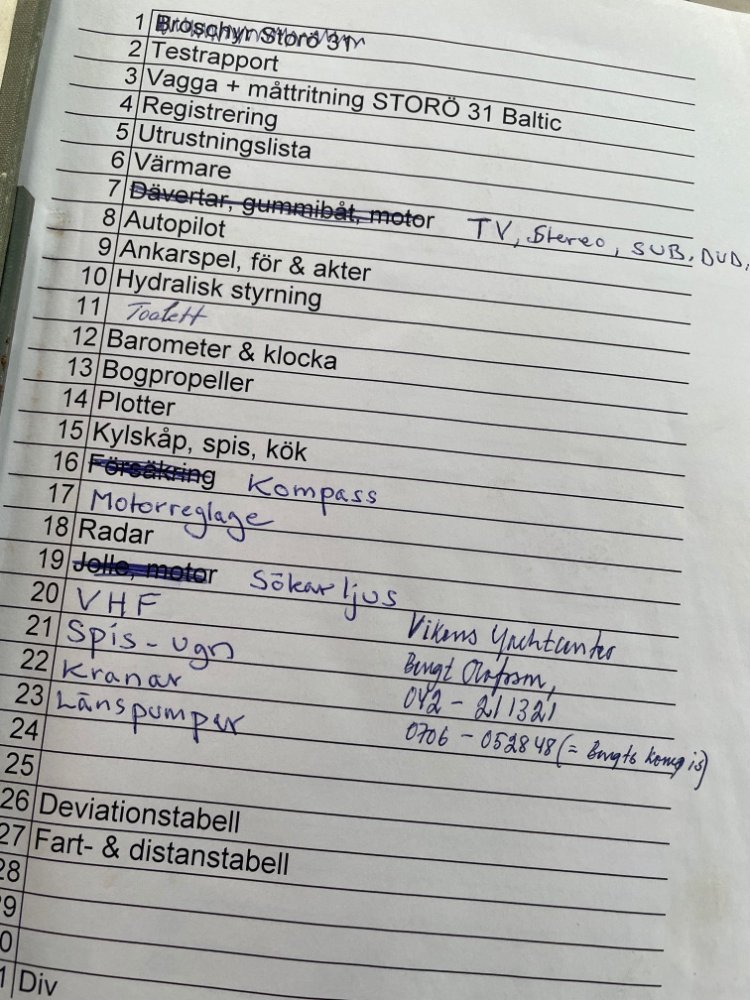 1 Broschyr Storö 31
2 Testrapport
3 Vagga + måttritning STORÖ 31 Baltic
4 Registrering
5 Utrustningslista
6 Värmare
7 Dävertar, gummibåt, motor TV, Stereo, SUB, DVD,
8 Autopilot
9 Ankarspel, för & akter
10 Hydralisk styrning
11 Toalett
12 Barometer & klocka
13 Bogpropeller
14 Plotter
15 Kylskåp, spis, kök
16 Försäkring Kompass
17 Motorreglage
18 Radar
19 Jolle, motor Sökarljus
20 VHF Vikens Yachtcenter
21 Spis-ugn Bengt Olofsson,
22 Kranar 042-211321
23 Länspumpar 0706-052848 (= Bengts
24
25
26 Deviationstabell
27 Fart- & distanstabell
28
9
0
1 Div